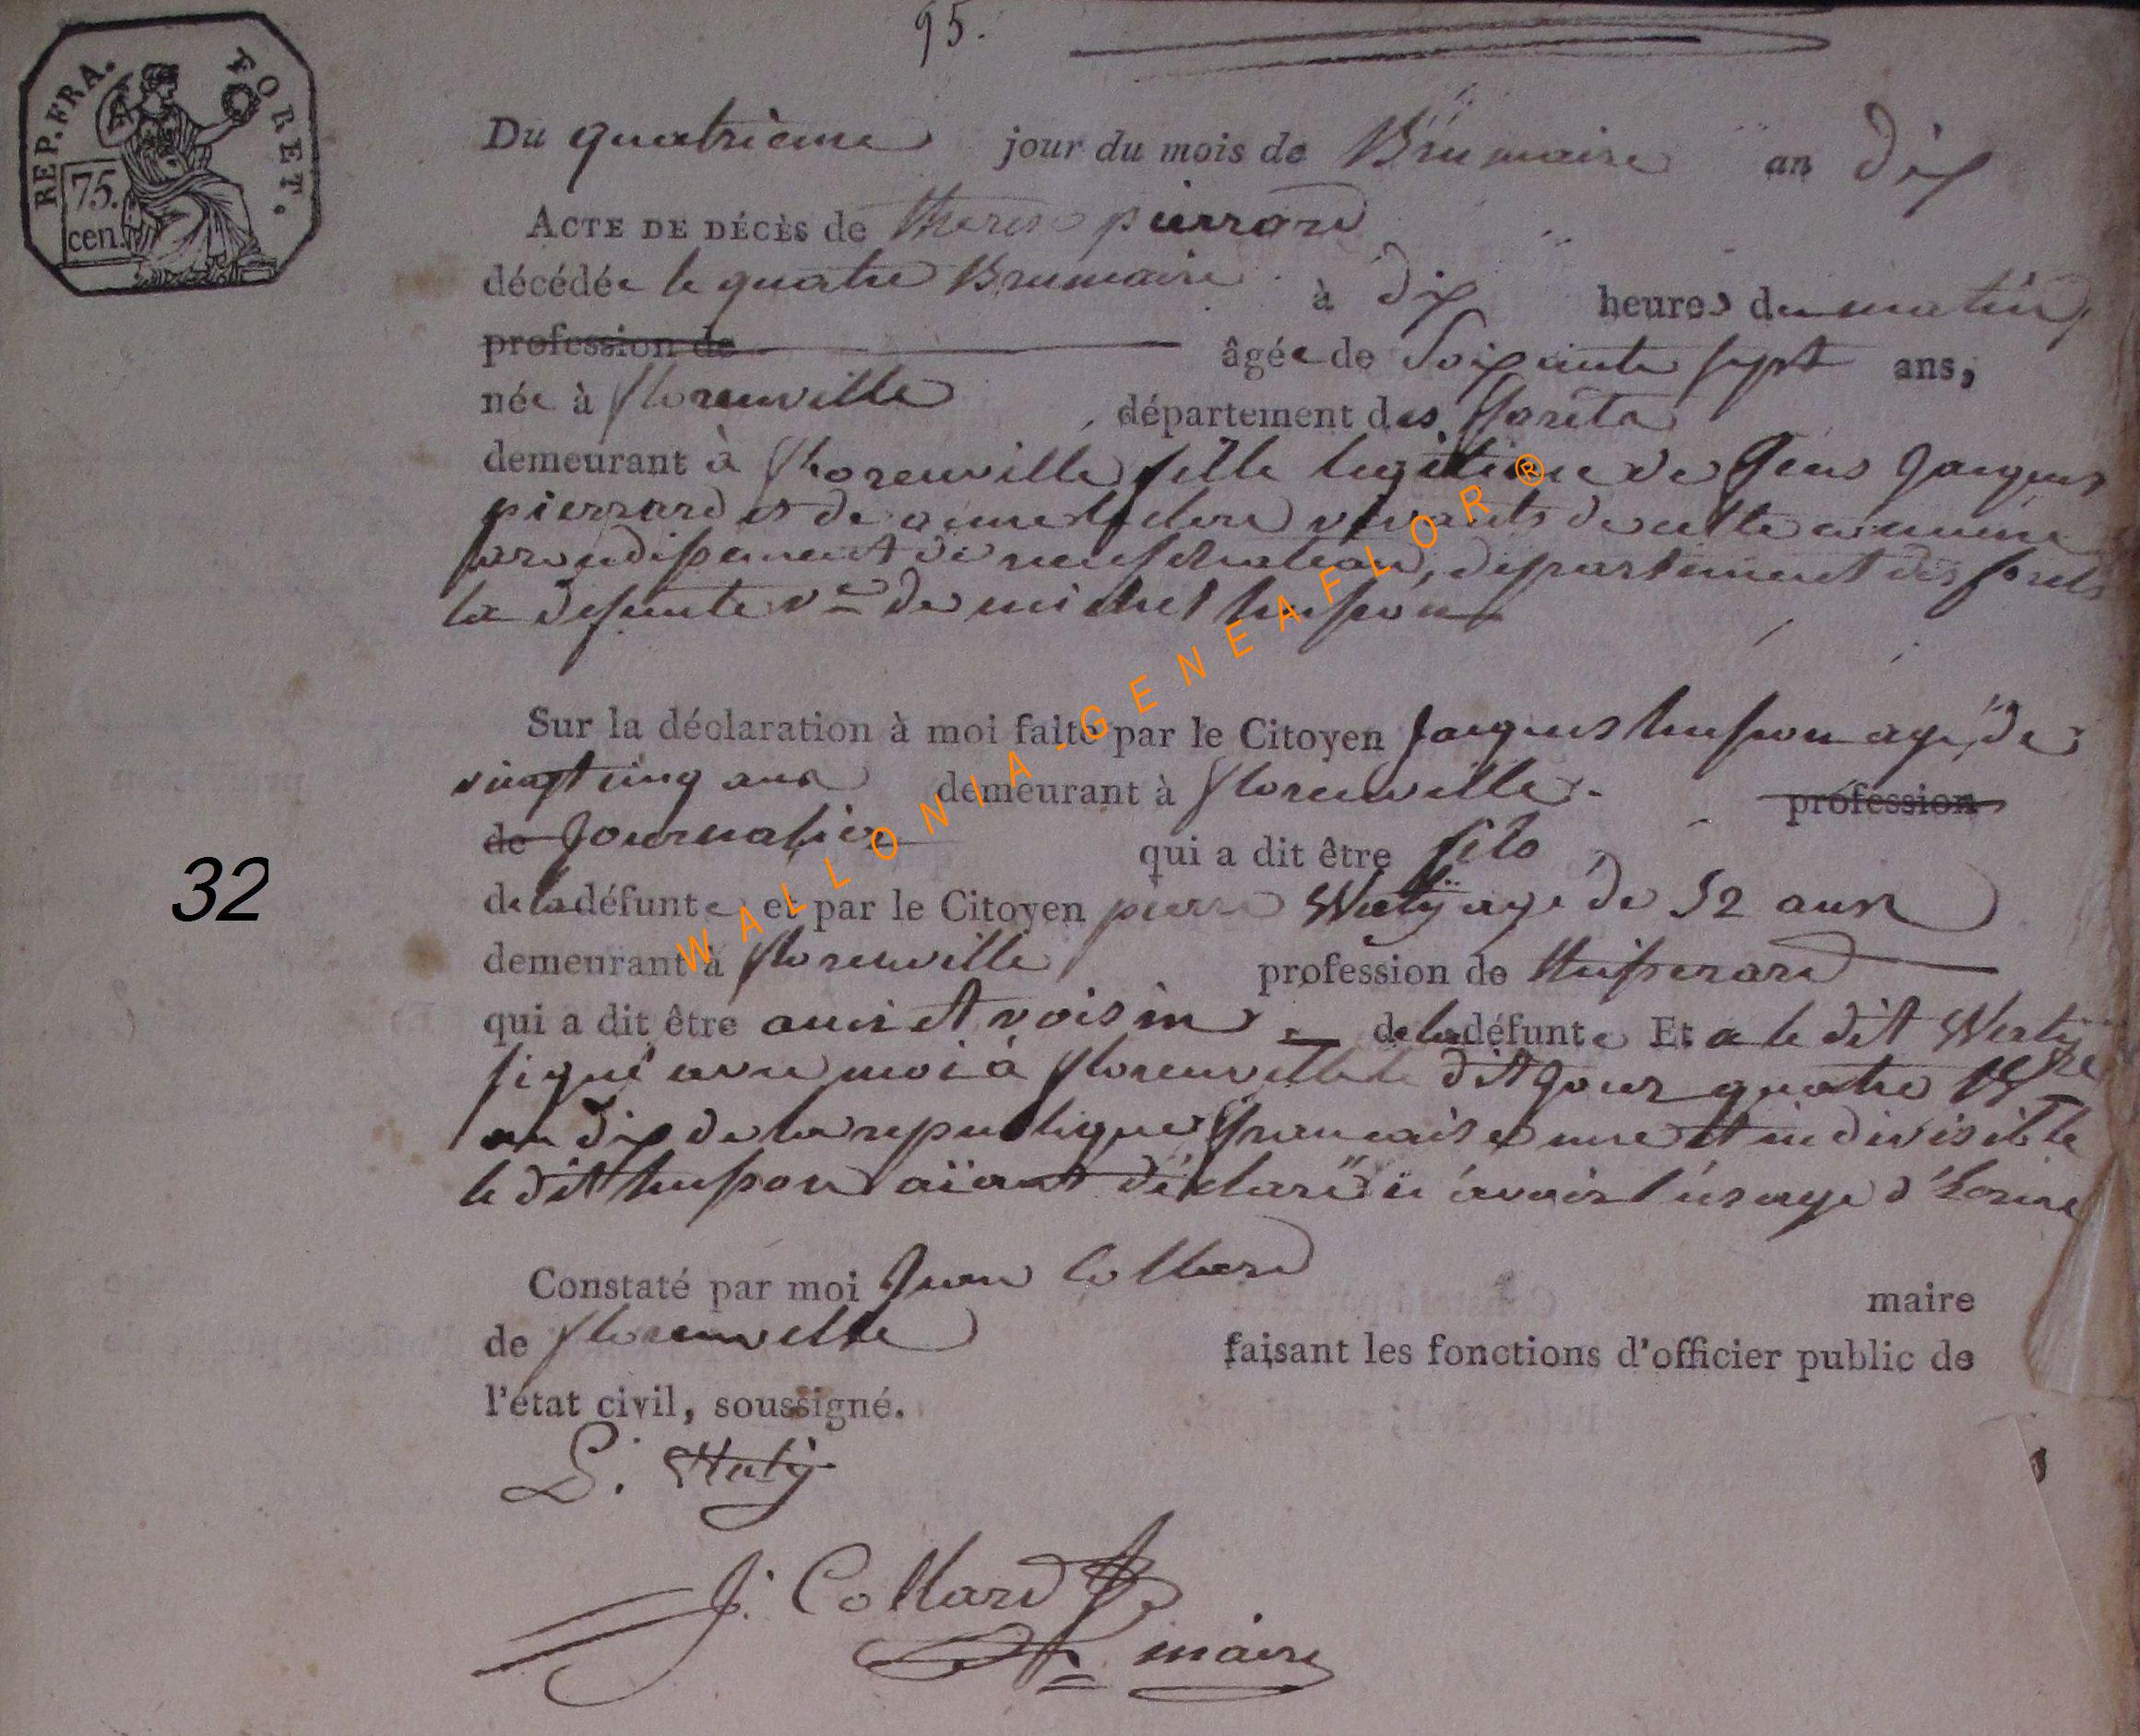 95.
REP. FRA. FORET.
75.
cen.
Du quatrieme jour du mois de Brumaire an dix
ACTE DE DÉCÈS de therese pierrard
décédée le quatre Brumaire à dix heures du matin,
profession de âgée de Soixante sept ans,
née à florenville département des forêts
demeurant à florenville fille legitime de Jean Jacques
pierrard et de vivants de cette commune
arondissement de neufchateau, departement des forets
la defunte ve de michel husson
Sur la déclaration à moi faite par le Citoyen Jacques husson agé de
vingt cinq ans demeurant à florenville. profession
de Journalier qui a dit être fils
de la défunte et par le Citoyen pierre Watÿ agé de 52 ans
demeurant à florenville profession de
qui a dit être ami et voisin de la défunte Et a le dit Watÿ
signé avec moi à florenville le dit jour quatre Bre
an dix de la republique française une et indivisible
le dit husson aïant déclaré n'avoir l'usage d'écrire
Constaté par moi Jean Collard maire
de florenville faisant les fonctions d'officier public de
l'état civil, soussigné.
P. Watÿ
J. Collard
maire
32
WALLONIA-GENEAFLOR®